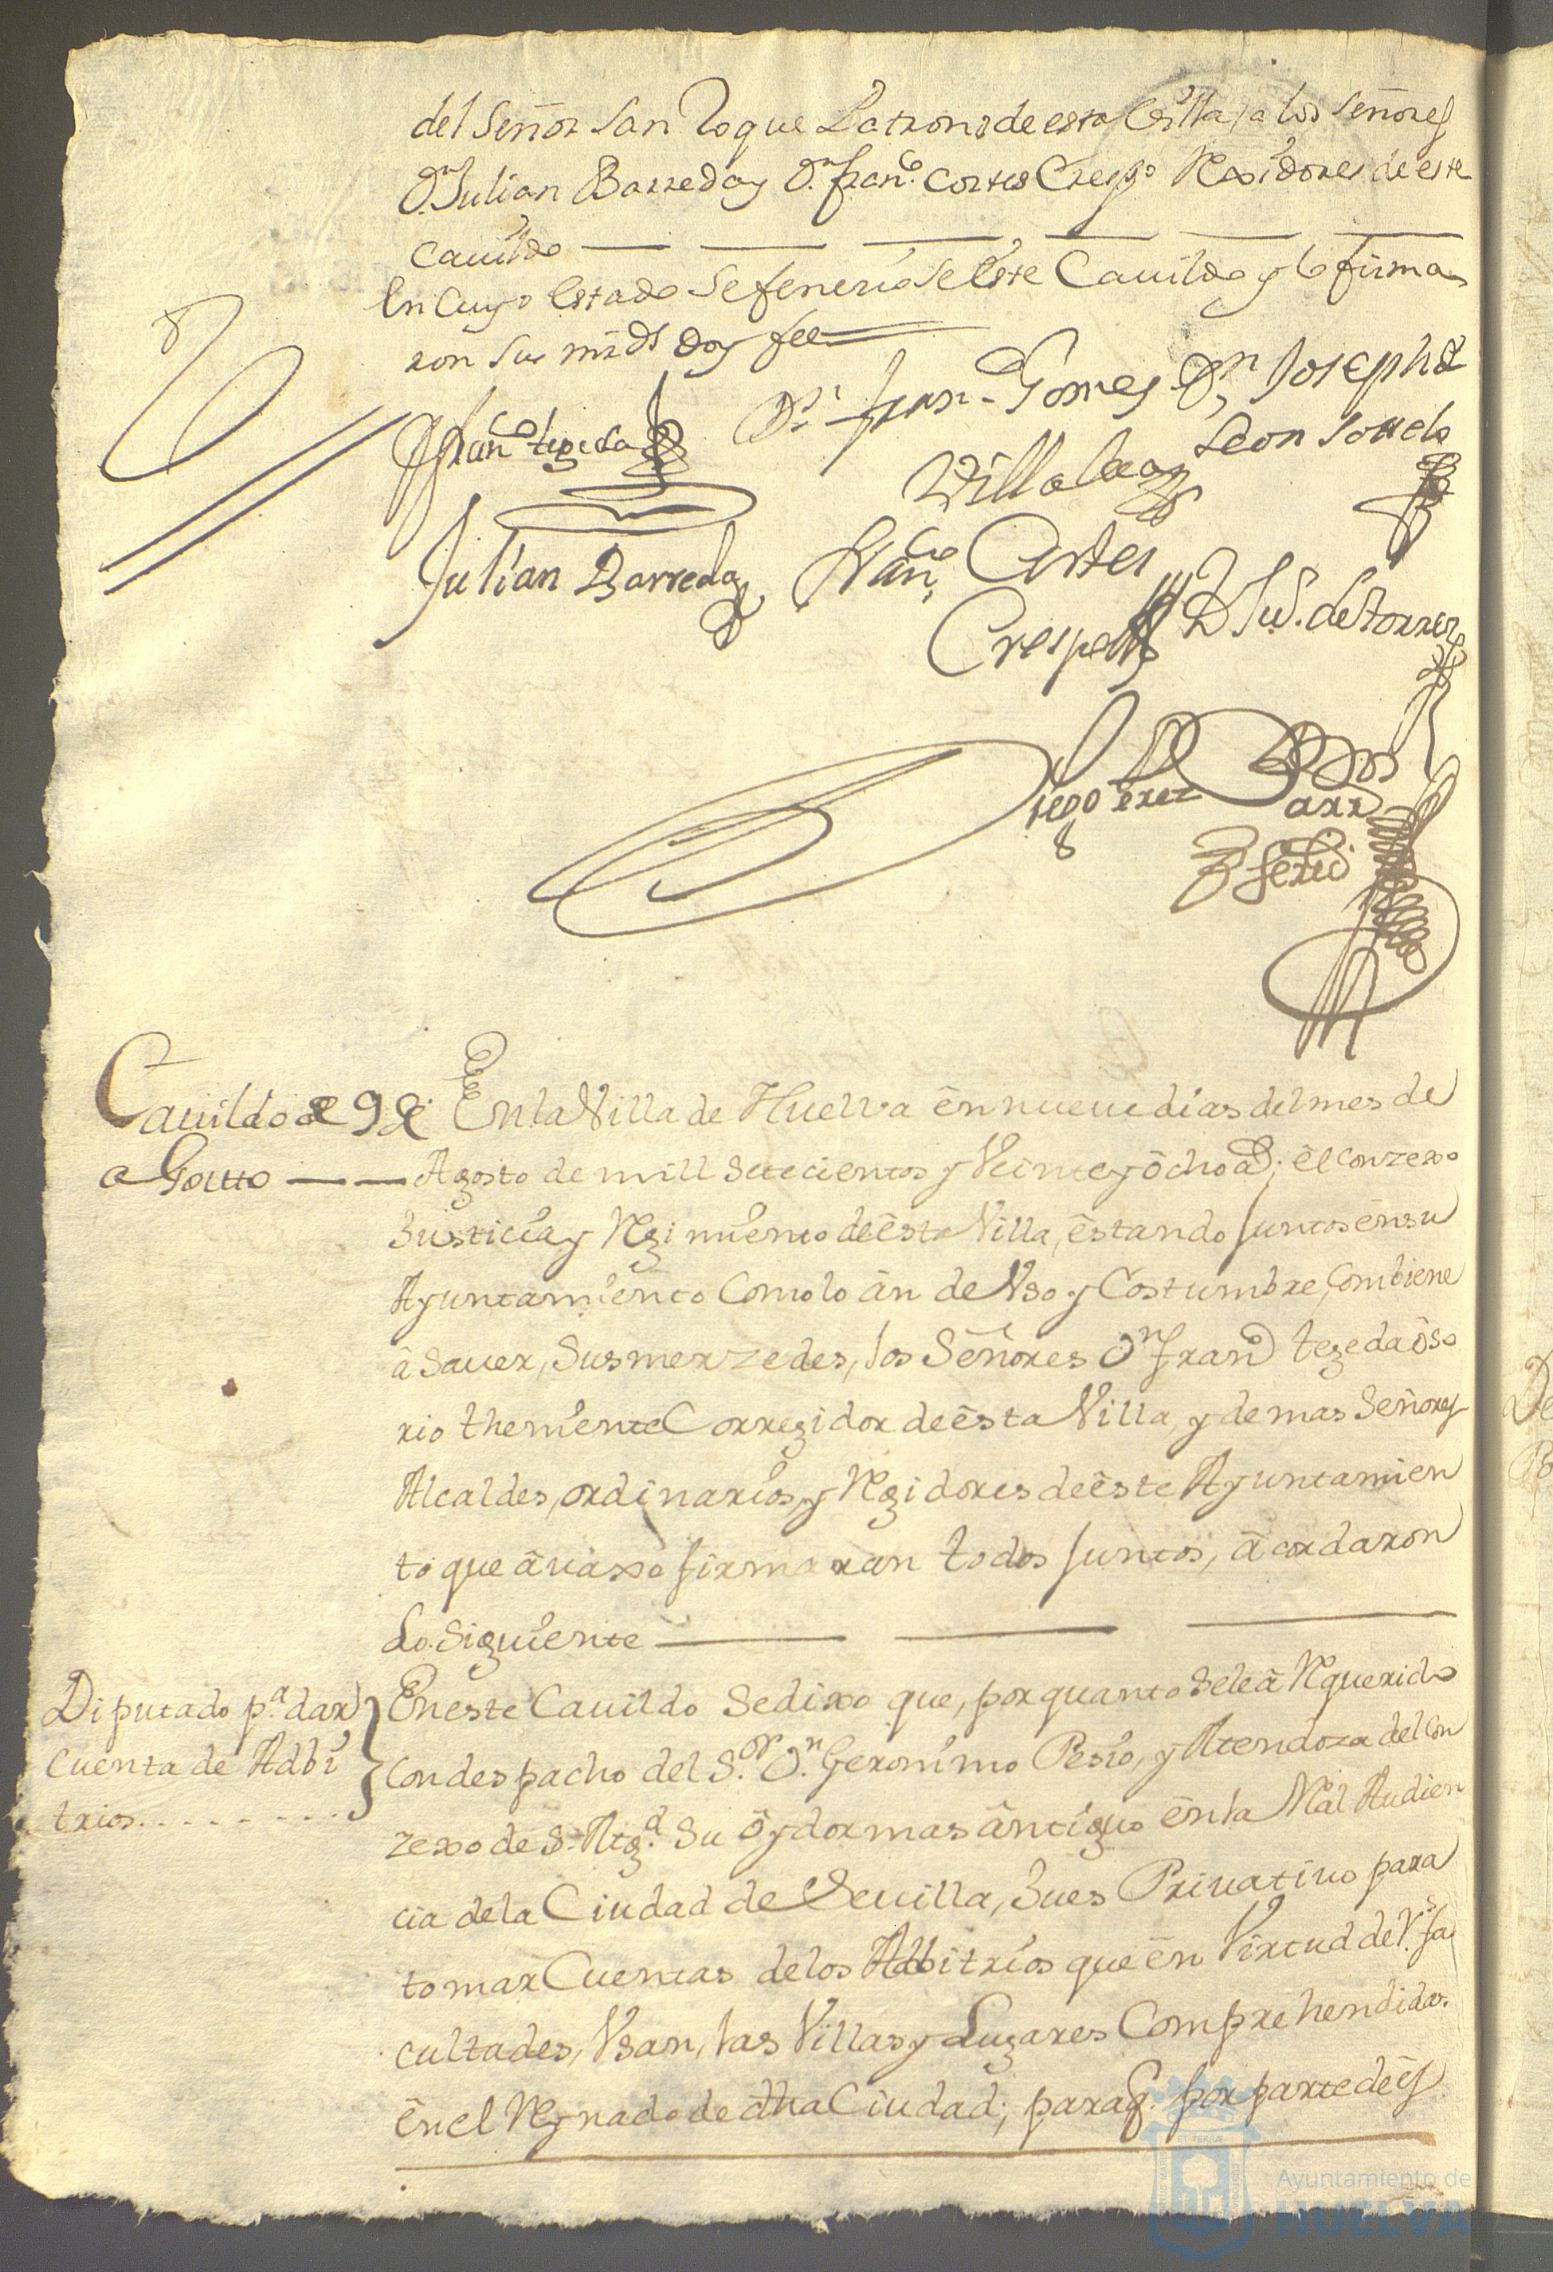 del Señor San Roque Patrono de esta Villa, a los Señores
Dn. Julian Barreda y Dn. Franco. Cortes Crespo Rexidores de este
Cauildo
En Cuyo Estado Se fenecio Se Este Cauildo y lo firma
ron Sus mrds doy fee
Franco tegeda
Dn. Fran Gomes
Villalaa
Dn Joseph de
Leon Sotelo
Julian Barreda
Franco Cortes
Crespo
D Ju. de Torres
Diego Perez
Barr
Cauildo de 9 de
Agosto
En la Villa de Huelva ên nueue dias del mes de
Agosto de mill Setecientos y Veinte y ôcho as; êl conzexo
Justicia y Regimiento de êsta Villa, êstando Juntos ên su
Ayuntamiento Como lo ân de Vso y Costumbre, Combiene
â Sauer, Sus merzedes, los Señores Dn Franco tegeda ôso
rio theniente Corregidor de êsta Villa, y demas Señores
Alcaldes, ordinarios, y Regidores de êste Ayuntamien
to que âuaxo firmaran todos Juntos, âcordaron
Lo Siguiente
Diputado pa. dar
Cuenta de Adbi
trios
En este Cauildo Se dixo que, por quanto Se le â Requerido
Con despacho del Sor. Dn. Geronimo Pesio, y Mendoza del Con
zexo de S. Mgd. Su ôydor mas ântiguo ên la Rl Audien
cia de la Ciudad de Seuilla, Jues Priuatiuo para
tomar Cuentas de los Adbitrios que ên Virtud de Rs. fa
cultades, Vsan, las Villas y Lugares Comprehendidas
ên el Reynado de dha Ciudad; para q. por parte de ês
Ayuntamiento de
HUELVA